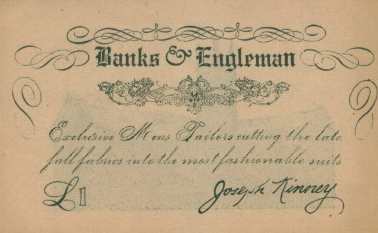 Banks & Engleman
Exclusive Mens Tailors cutting the late
fall fabrics into the most fashionable suits
£1 Joseph Kinney